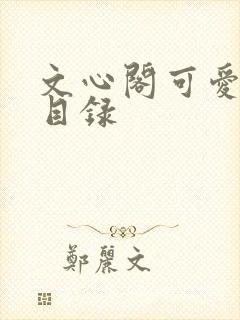 文心閣可愛
目錄
鄭麗文